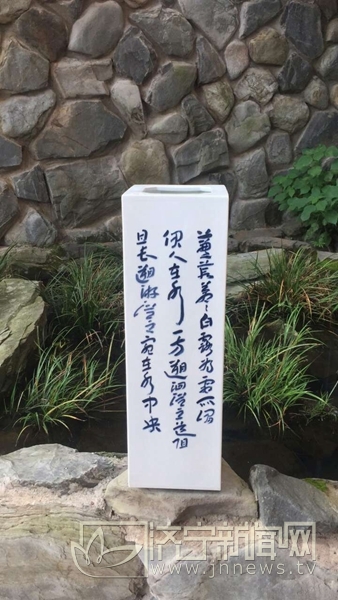 蒹葭苍々白露为霜所谓
伊人在水一方遡洄从之道阻
且长遡游从之宛在水中央
济宁新闻网
www.jnnews.tv